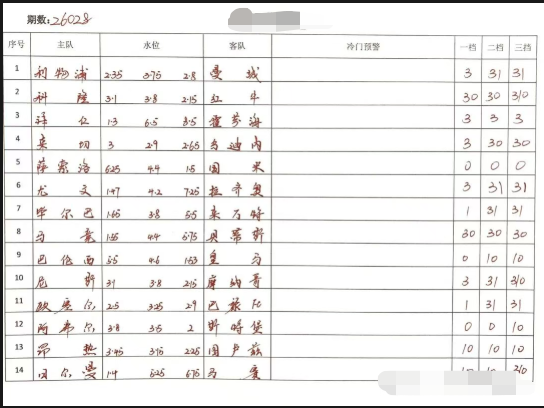 期数: 26028
序号 主队 水位 客队 冷门预警 一档 二档 三档
1 利物浦 2.35 3.75 2.8 曼城 3 31 31
2 科隆 3.1 3.8 2.15 红牛 30 30 310
3 拜仁 1.3 6.5 8.5 霍芬海 3 3 3
4 莱切 3 2.9 2.65 乌迪内 3 30 30
5 萨索洛 6.25 4.4 1.5 国米 0 0 0
6 尤文 1.47 4.2 7.25 拉齐奥 3 31 31
7 毕尔巴 1.65 3.8 5.5 莱万特 1 31 31
8 马竞 1.55 4.4 5.75 贝蒂斯 30 30 30
9 巴伦西 5.5 4.6 1.53 皇马 0 10 10
10 尼斯 3.1 3.8 2.15 摩纳哥 3 31 310
11 欧塞尔 2.5 3.25 2.9 巴黎FC 1 31 31
12 阿弗尔 3.8 3.5 2 斯特堡 0 0 10
13 昂热 3.45 3.15 2.25 图卢兹 10 10 10
14 阿尔曼 1.4 5.25 6.75 马赛 310